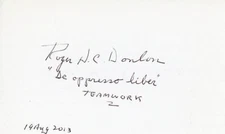 Roger H.C. Donlon
"De oppresso liber"
TEAMWORK
2
19 Aug 2013